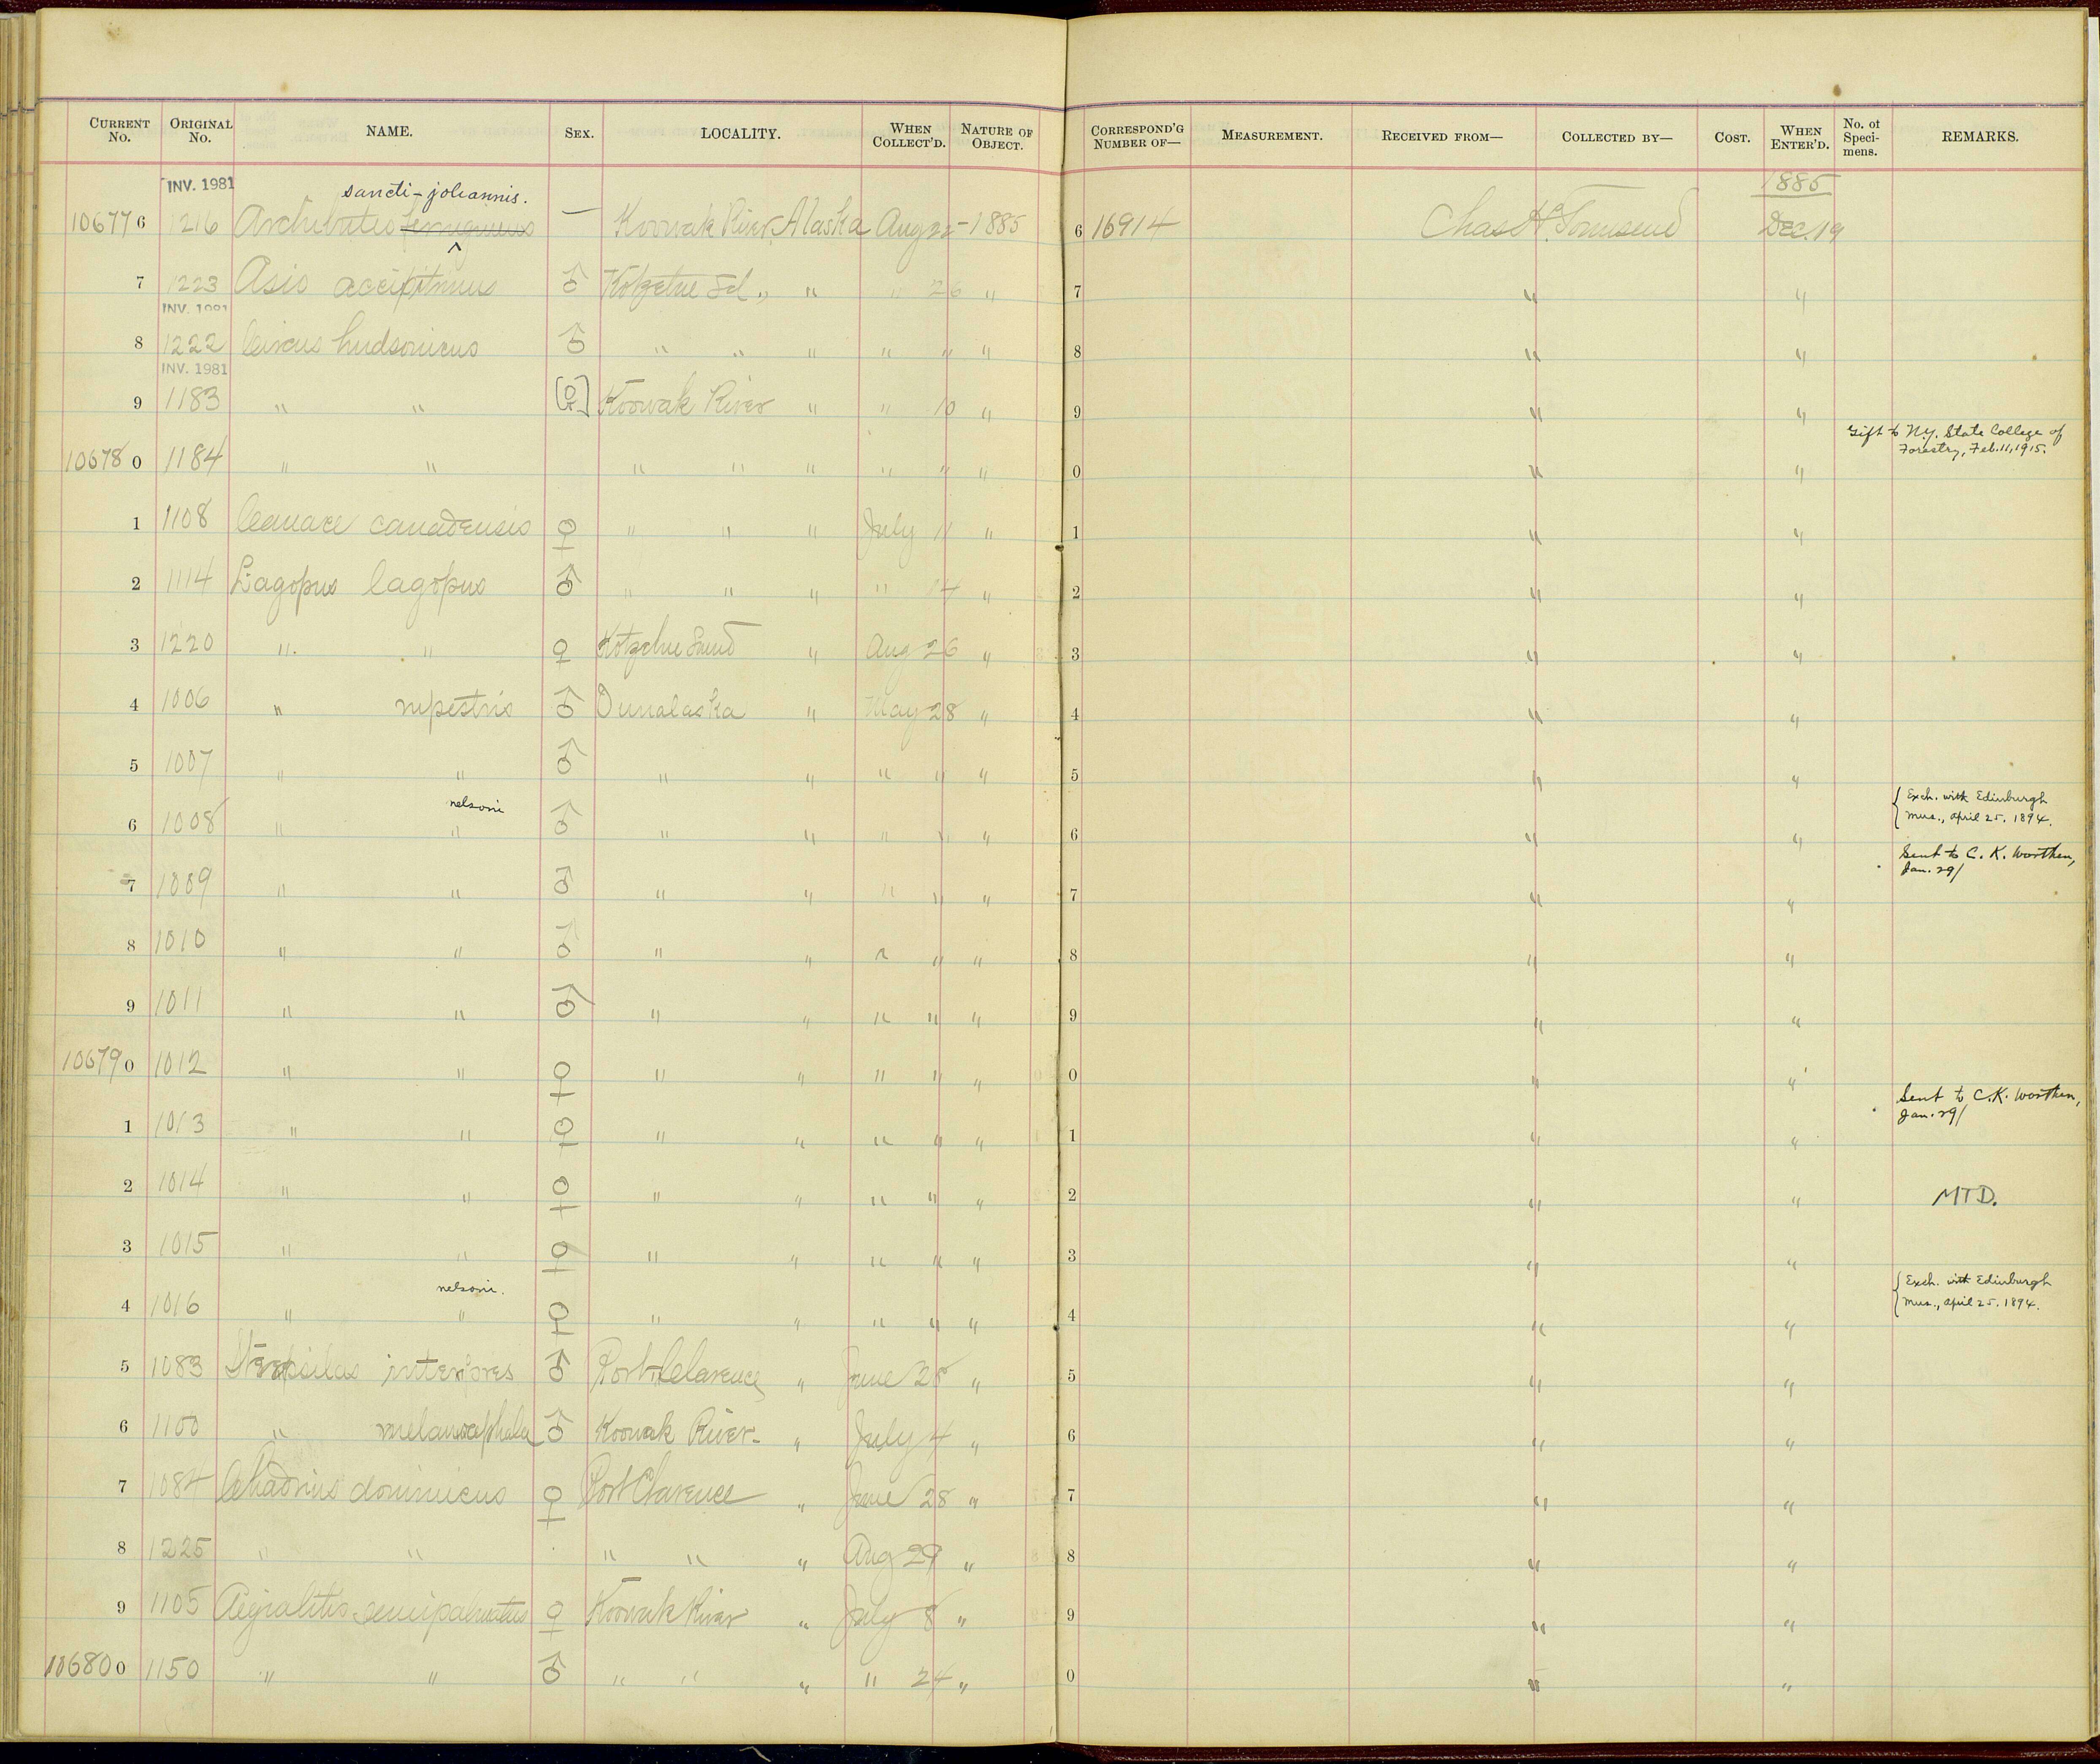 CURRENT No. ORIGINAL No. NAME. SEX. LOCALITY. WHEN COLLECT'D. NATURE OF OBJECT. CORRESPOND'G NUMBER OF— MEASUREMENT. RECEIVED FROM— COLLECTED BY— COST. WHEN ENTER'D. No. of Specimens. REMARKS.
INV. 1981 sancti-johannis. 1885
106776 1216 Archibuteo ferrugineus — Koowak River, Alaska Aug 22 - 1885 6 16914 Chas H. Townsend Dec. 19
7 1223 Asio accipitrinus ♂ Kotzebue Sd. " " 26 " 7 " "
INV. 1981
8 1222 Circus hudsonicus ♂ " " " " " " 8 " "
INV. 1981
9 1183 " " [♀] Koowak River " " 10 " 9 " "
106780 1184 " " " " " " " " 0 " " Gift to N.Y. State College of Forestry, Feb. 11, 1915.
1 1108 Canace canadensis ♀ " " " July 11 " 1 " "
2 1114 Lagopus lagopus ♂ " " " " 14 " 2 " "
3 1220 " " ♀ Kotzebue Sound " Aug 26 " 3 " "
4 1006 " rupestris ♂ Ounalaska " May 28 " 4 " "
5 1007 " " ♂ " " " " " 5 " "
nelsoni
6 1008 " " ♂ " " " " " 6 " " { Exch. with Edinburgh Mus., April 25. 1894.
7 1009 " " ♂ " " " " " 7 " " Sent to C. K. Worthen, Jan. 29/
8 1010 " " ♂ " " " " " 8 " "
9 1011 " " ♂ " " " " " 9 " "
106790 1012 " " ♀ " " " " " 0 " "
1 1013 " " ♀ " " " " " 1 " " Sent to C.K. Worthen, Jan. 29/
2 1014 " " ♀ " " " " " 2 " " MTD.
3 1015 " " ♀ " " " " " 3 " "
nelsoni.
4 1016 " " ♀ " " " " " 4 " " { Exch. with Edinburgh Mus., April 25. 1894.
5 1083 Strepsilas interpres ♂ Port Clarence " June 28 " 5 " "
6 1100 " melanocephala ♂ Koowak River " July 4 " 6 " "
7 1084 Chadrius dominicus ♀ Port Clarence " June 28 " 7 " "
8 1225 " " " " " Aug 29 " 8 " "
9 1105 Aegialitis semipalmatus ♀ Koowak River " July 8 " 9 " "
106800 1150 " " ♂ " " " " 24 " 0 " "